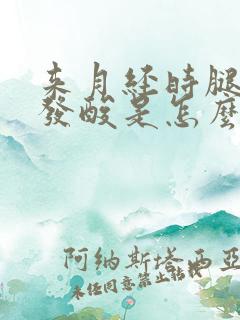 来月经時腿
發酸是怎麼
阿纳斯塔西亞
未经同意禁止转载